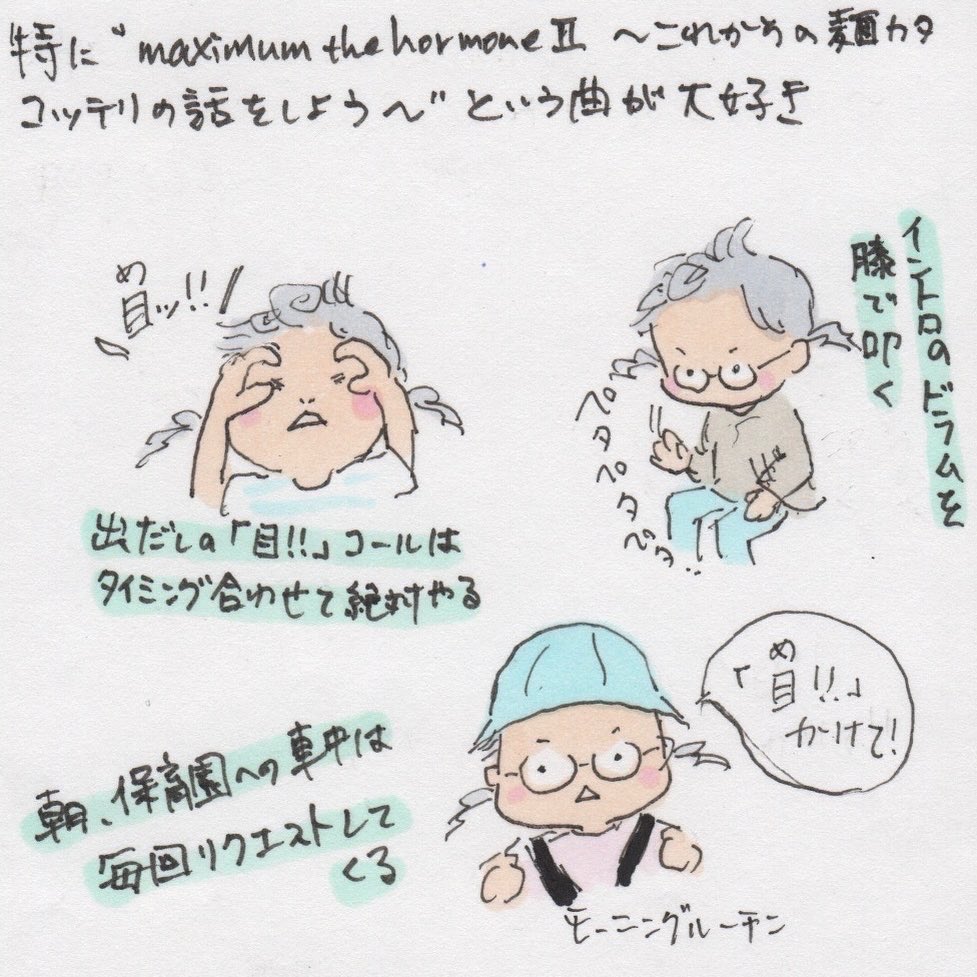 特に"maximum the hormone Ⅱ ～これからの麺カタ
コッテリの話をしよう～"という曲が大好き
め
目ッ!!
出だしの「目!!」コールは
タイミング合わせて絶対やる
イントロのドラムを
膝で叩く
ペタペタペタ!!
「目!!」
め
かけて!
朝、保育園への車中は
毎回リクエストして
くる
モーニングルーチン